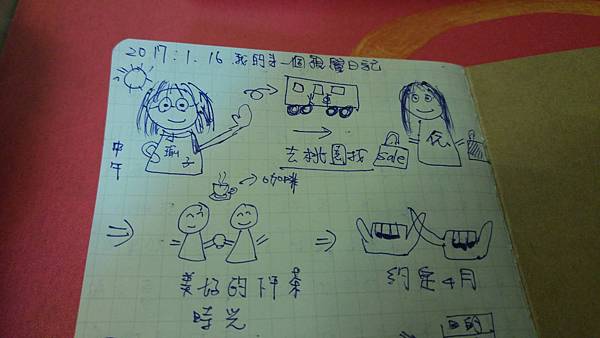 2017.1.16 我的第一個視覺日記
中午
瑜子
去桃園找
sale
咖啡
美好的下午茶
時光
約定4月
目的